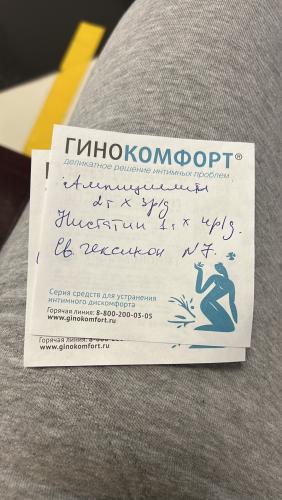 ГИНОКОМФОРТ®
деликатное решение интимных проблем
Ампициллин
2т х 3р/д
Нистатин 1т х 4р/д.
Св. Гексикон N7.
Серия средств для устранения
интимного дискомфорта
Горячая линия: 8-800-200-03-05
www.ginokomfort.ru
Горячая линия: 8-800-200-03-05
www.ginokomfort.ru